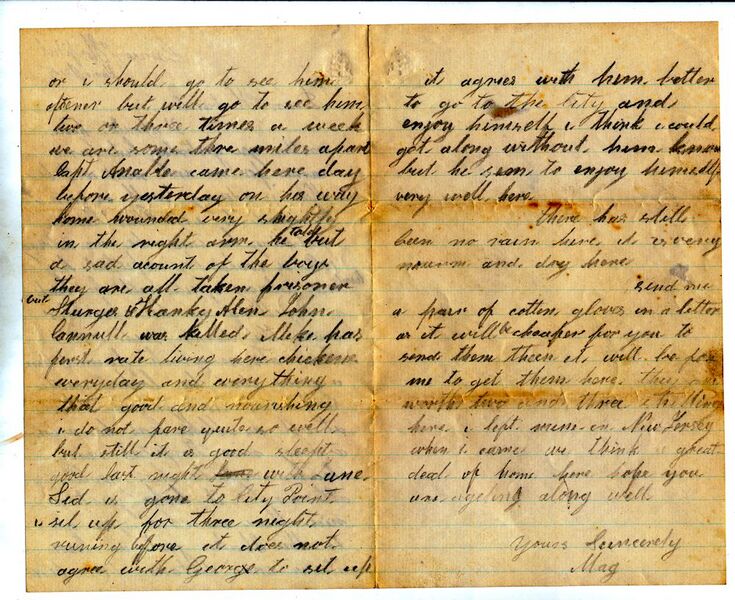 or i should go to see him
oftener but will go to see him
two or three times a week
we are some thre miles apart
Capt Anable came here day
before yesterday on his way
home wounded very slightly
in the right arm he told but
a sad acount of the boys
they are all taken prisoner
but Sturges & Hanky Alen John
was killed Mike has
first rate living here chickens
everyday and everything
that good and nourishing
i do not fare quite so well
but still it is good sleept
good last night with June
Sid is gone to City Point
i set up for three night
runing before it does not
agree with George to set up
it agrees with him better
to go to the City and
enjoy himself i think i could
get along without him know
but he seem to enjoy himself
very well here
there has still
been no rain here it is very
warm and dry here
send me
a pair of cotten gloves in a letter
as it will be cheaper for you to
send them then it will be for
me to get them here they are
worth two and three
here i left mine in New Jersey
when i came we think a great
deal of home here hope you
are along well
Yours Sincerely
Mag